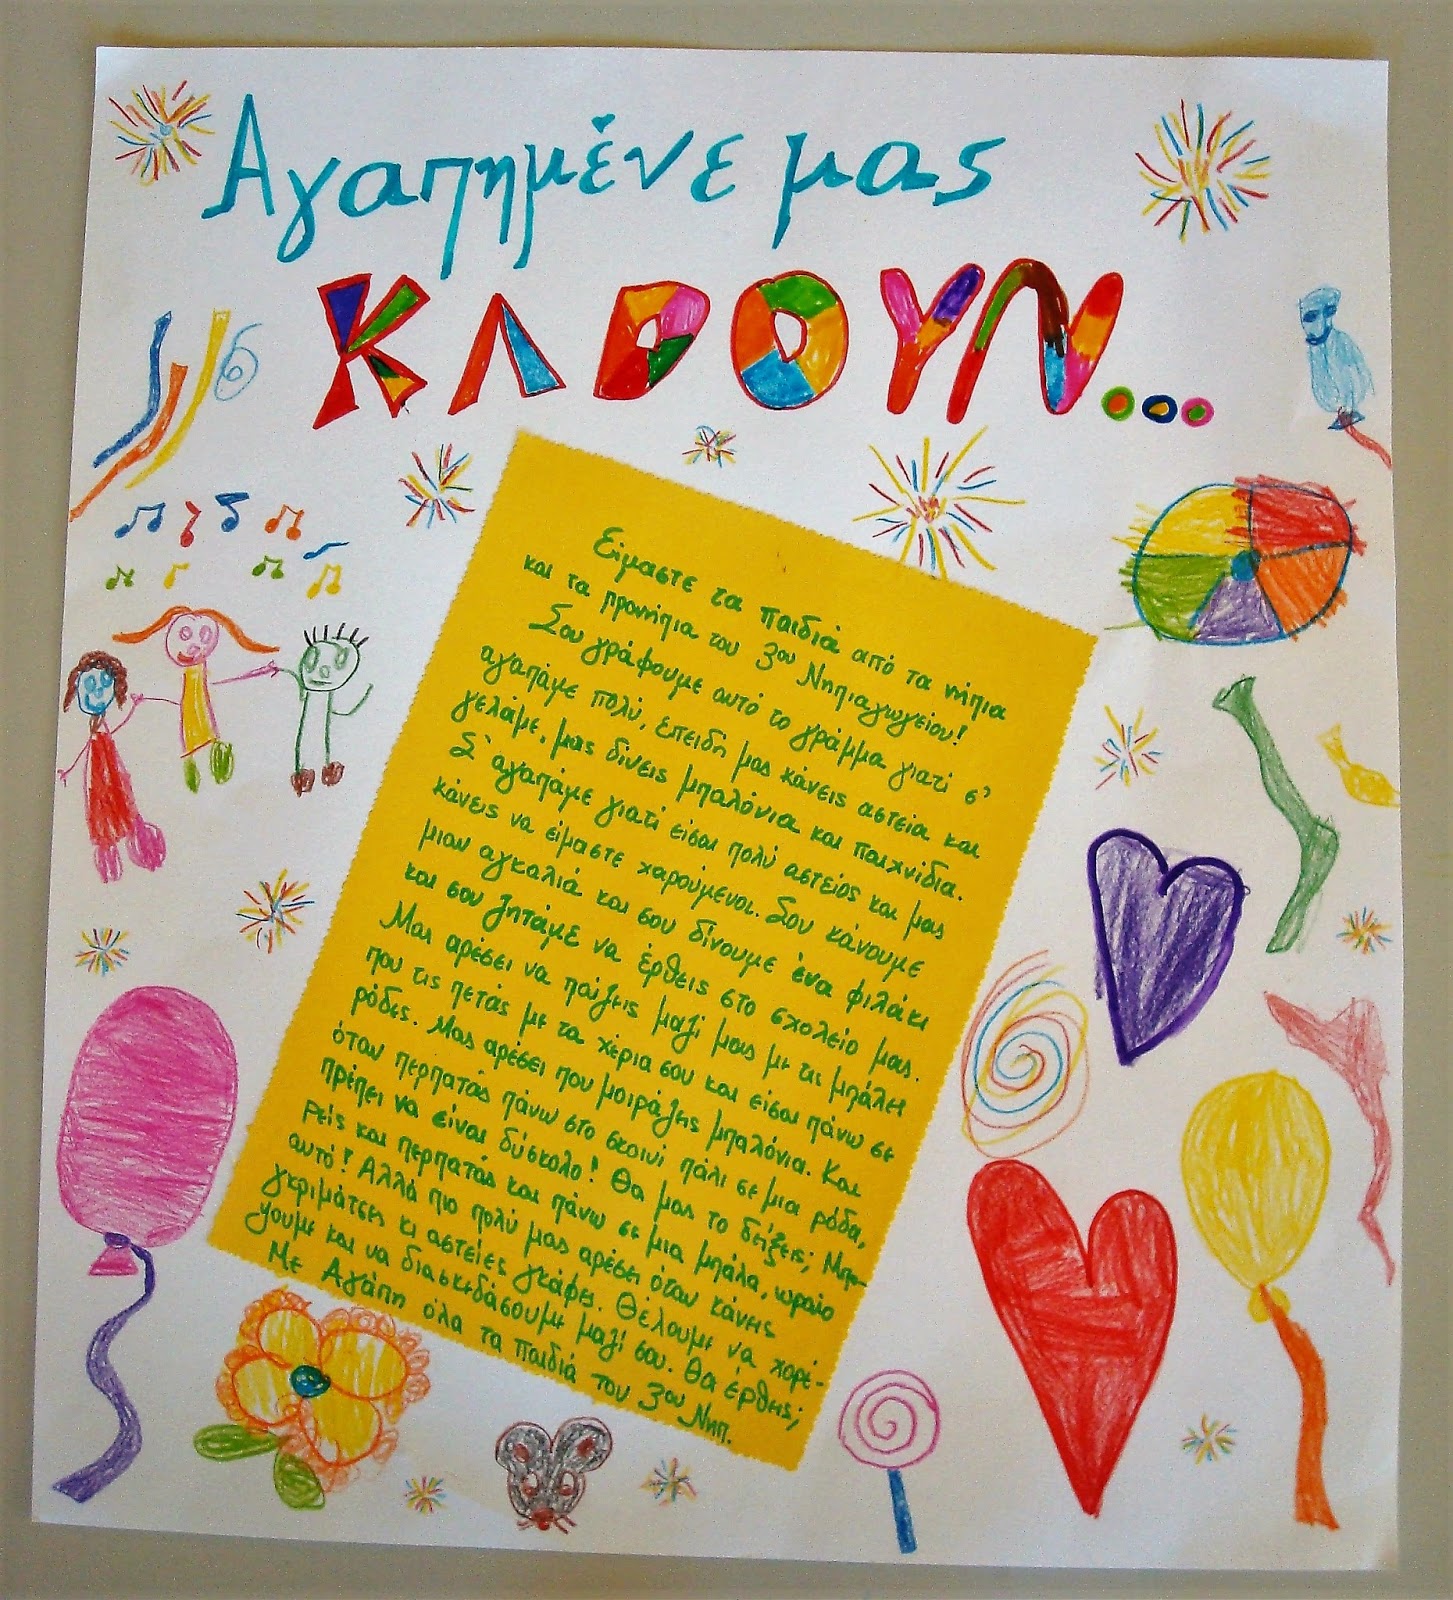 Αγαπημένε μας
ΚΛΟΟΥΝ...
Είμαστε τα παιδιά από τα νήπια
και τα προνήπια του 3ου Νηπιαγωγείου!
Σου γράφουμε αυτό το γράμμα γιατί σ'
αγαπάμε πολύ, επειδή μας κάνεις αστεία και
γελάμε, μας δίνεις μπαλόνια και παιχνίδια.
Σ' αγαπάμε γιατί είσαι πολύ αστείος και μας
κάνεις να είμαστε χαρούμενοι. Σου κάνουμε
μιαν αγκαλιά και σου δίνουμε ένα φιλάκι
και σου ζητάμε να έρθεις στο σχολείο μας.
Μας αρέσει να παίζεις μαζί μας με τις μπάλες
που τις πετάς με τα χέρια σου και είσαι πάνω σε
ρόδες. Μας αρέσει που μοιράζεις μπαλόνια. Και
όταν περπατάς πάνω στο σκοινί πάλι σε μια ρόδα,
πρέπει να είναι δύσκολο! Θα μας το δείξεις; Μπο-
ρείς και περπατάς και πάνω σε μια μπάλα, ωραίο
αυτό! Αλλά πιο πολύ μας αρέσει όταν κάνεις
γκριμάτσες κι αστείες γκάφες. Θέλουμε να χορέ-
ψουμε και να διασκεδάσουμε μαζί σου. Θα έρθεις;
Με Αγάπη όλα τα παιδιά του 3ου Νηπ.